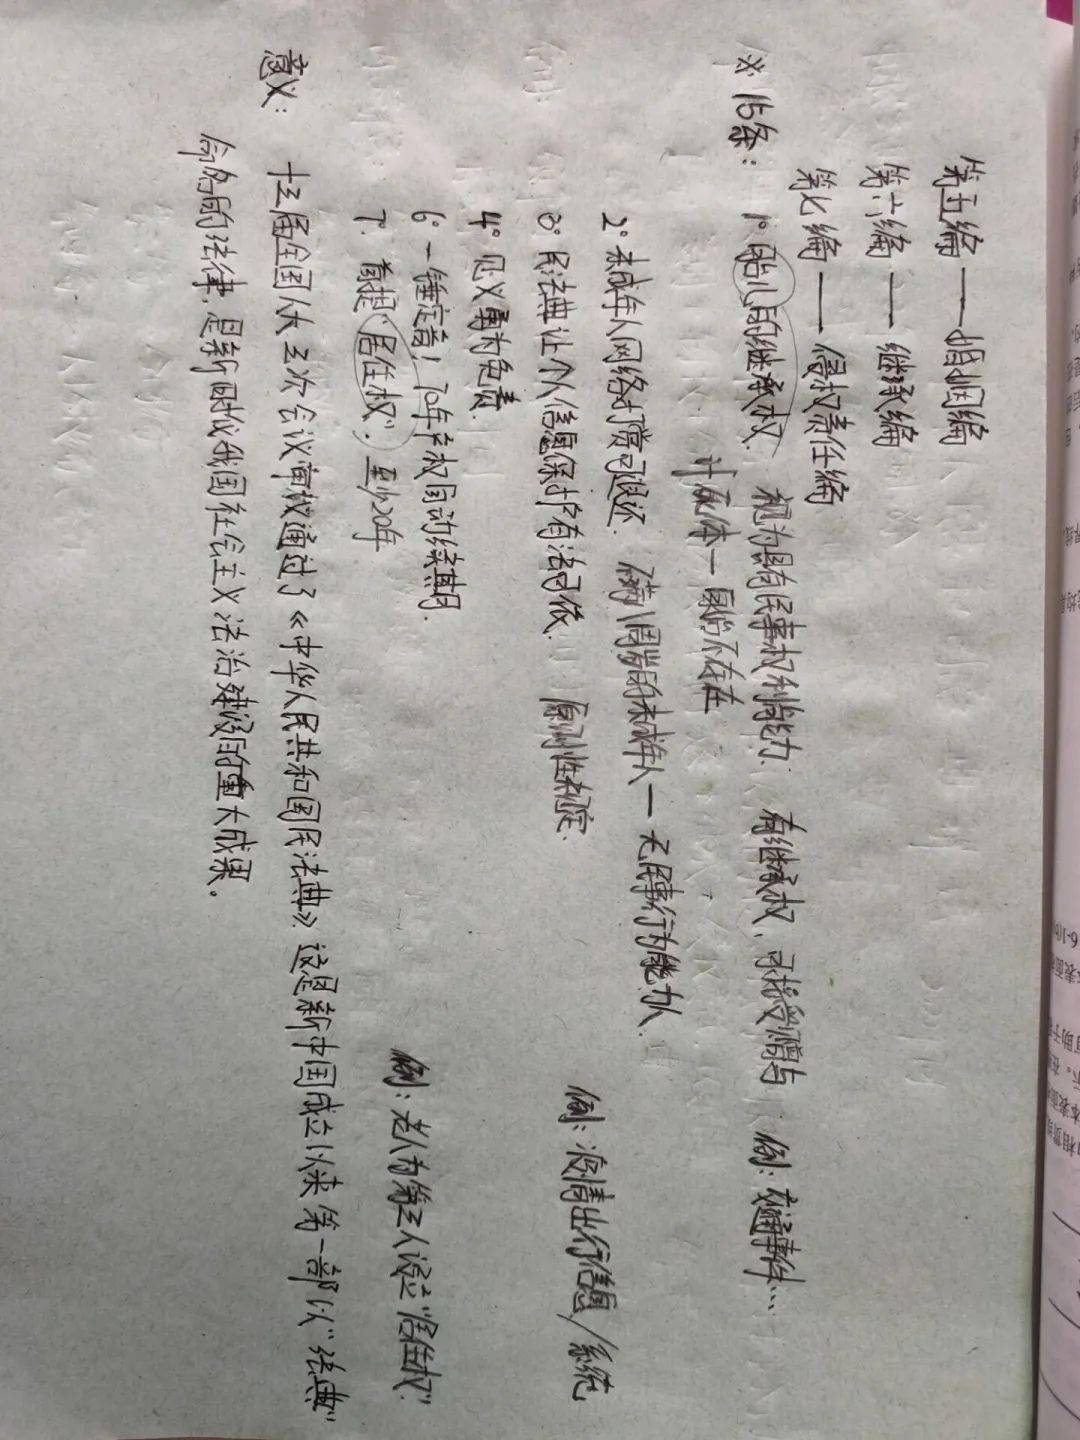 第五编——婚姻编
第六编——继承编
第七编——侵权责任编
※ 15条：
1° 胎儿的继承权. 视为具有民事权利能力. 有继承权, 可接受赠与 例：交通事件…
计 死体一自始不存在
2° 未成年人网络打赏可退还. 不满八周岁的未成年人一无民事行为能力人.
3° 民法典让个人信息保护有法可依. 原则性规定. 例：疫情出行信息/系统
4° 见义勇为免责.
6° 一锤定音！70年产权自动续期.
7. 首提“居住权”. 至少20年 例：老人为第三人设立“居住权”.
意义：
十三届全国人大三次会议审议通过了《中华人民共和国民法典》这是新中国成立以来第一部以“法典”
命名的法律, 是新时代我国社会主义法治建设的重大成果。